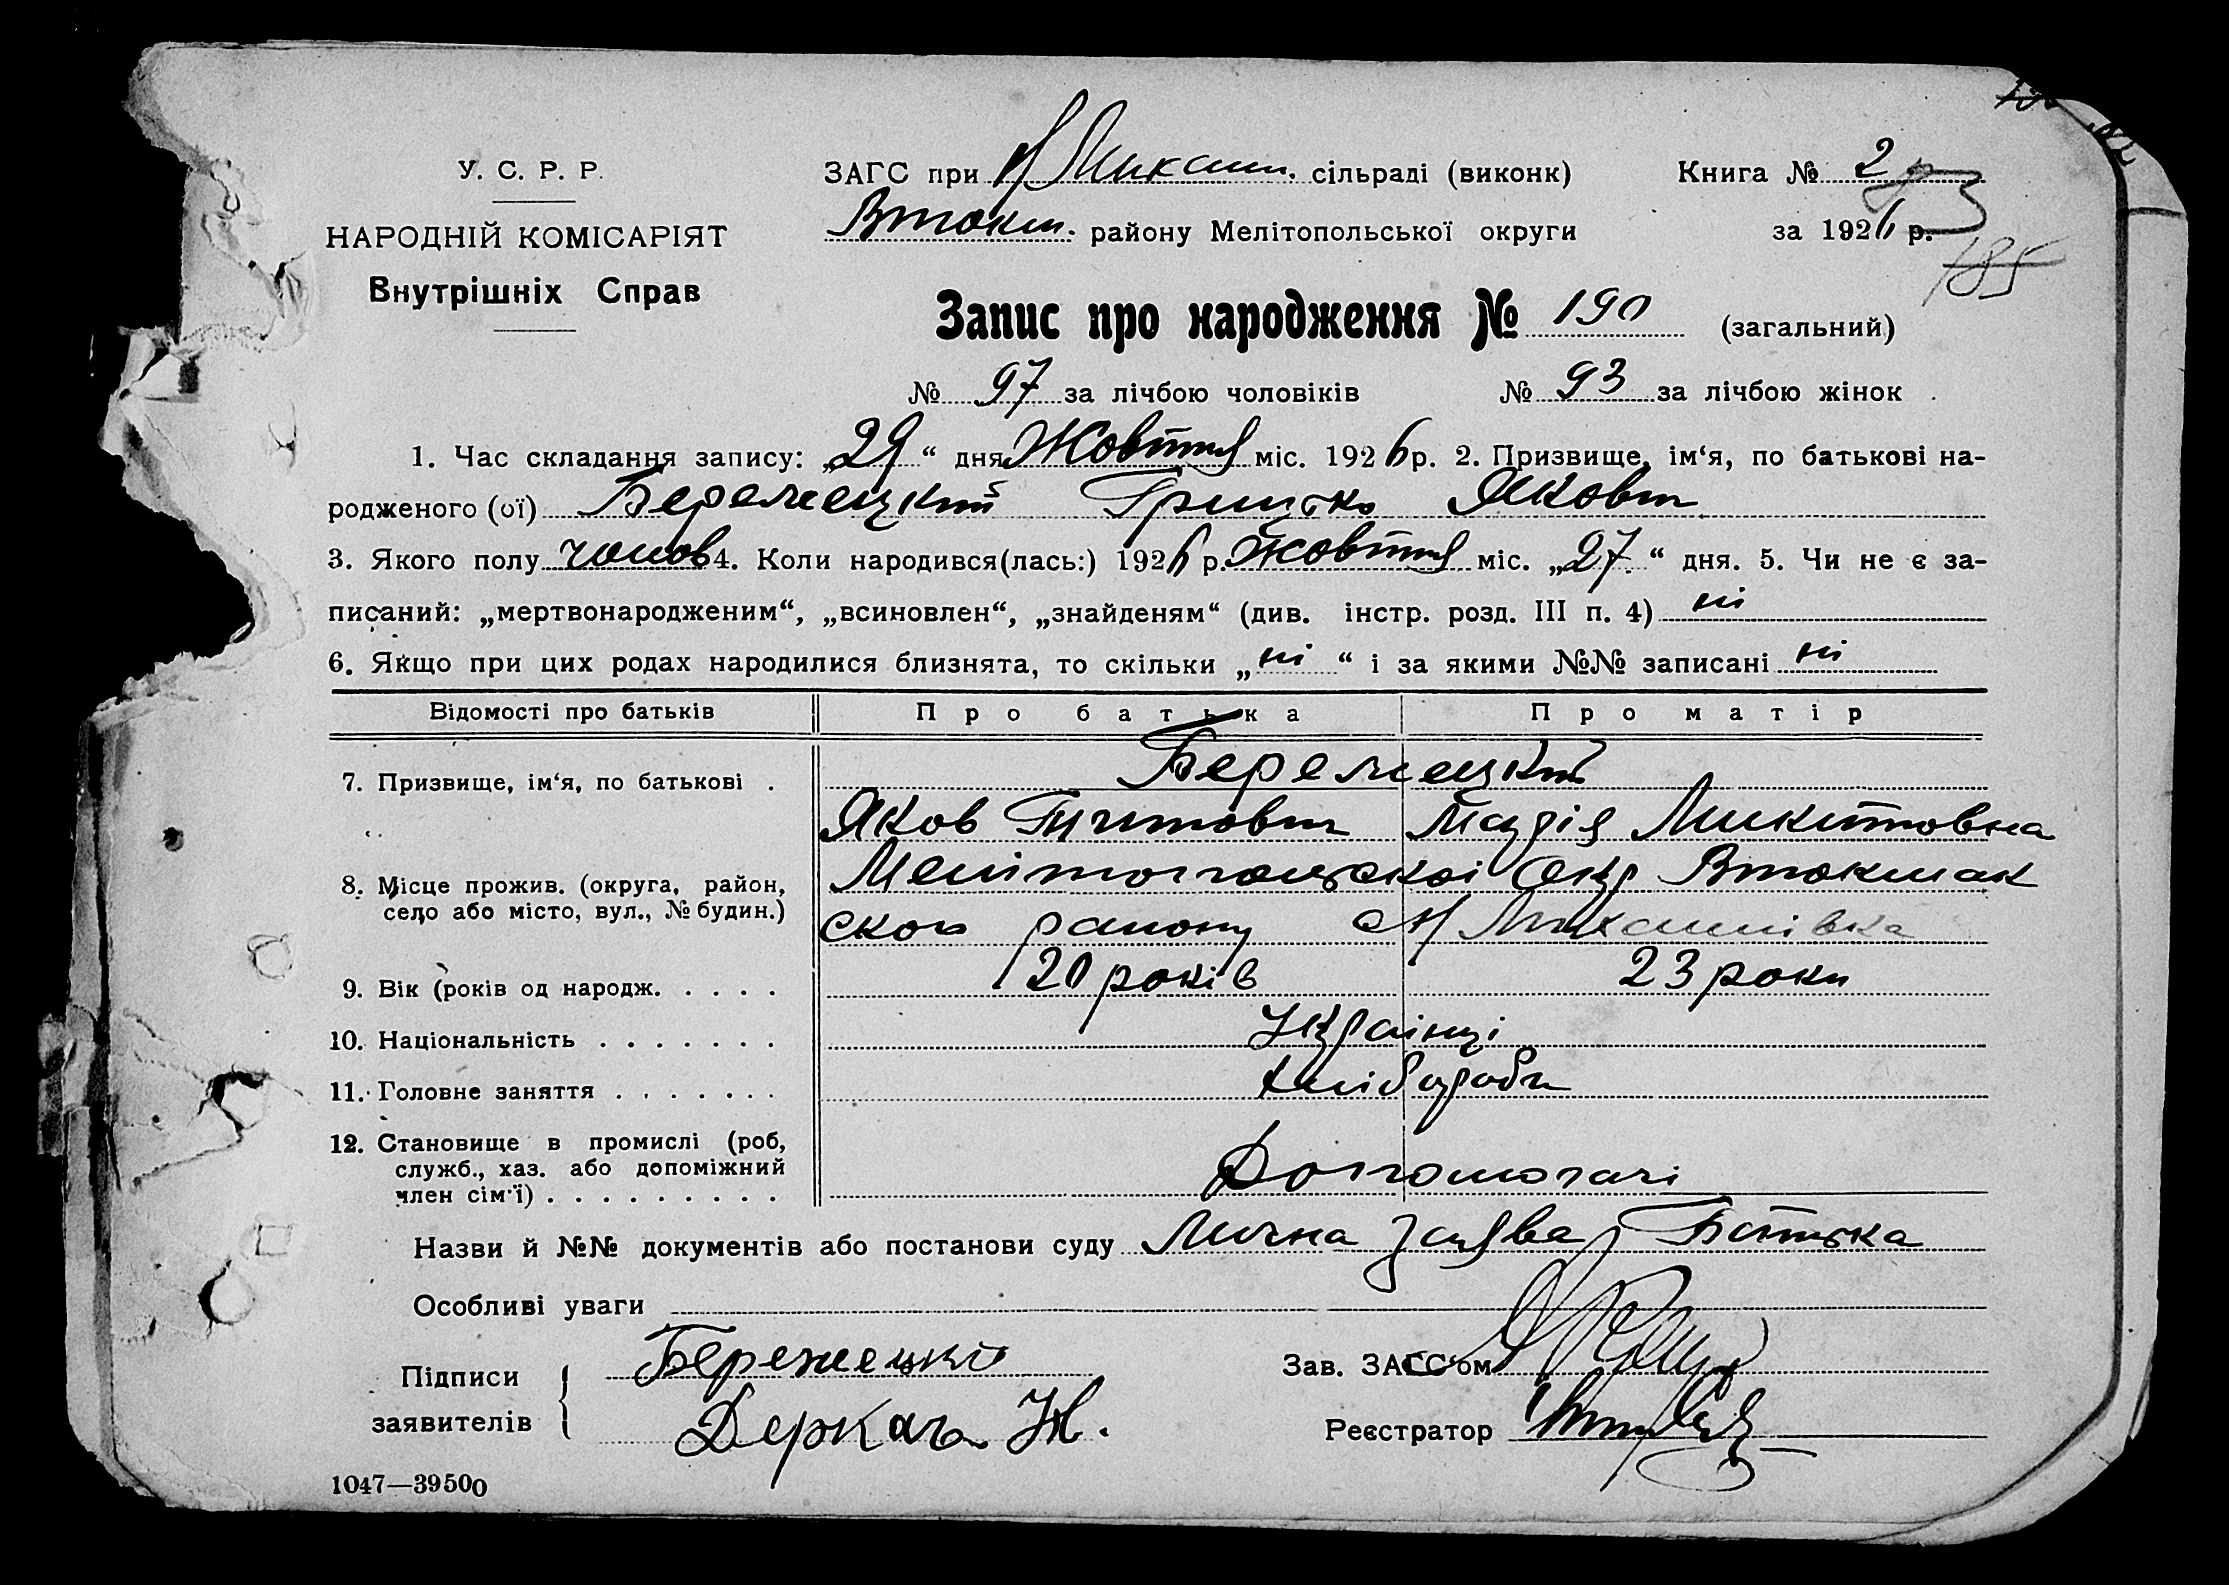 У. С. Р. Р.
НАРОДНІЙ КОМІСАРІЯТ
Внутрішніх Справ
ЗАГС при Н Микаил. сільраді (виконк)
Втокм. району Мелітопольської округи
Книга № 2
за 1926 р.
185
Запис про народження № 190 (загальний)
№ 97 за лічбою чоловіків № 93 за лічбою жінок
1. Час складання запису: „29“ дня Жовтня міс. 1926 р. 2. Призвище, ім‘я, по батькові на-
родженого (ої) Бережецкий Грицько Якович
3. Якого полу чолов 4. Коли народився(лась:) 1926 р. Жовтня міс. „27“ дня. 5. Чи не є за-
писаний: „мертвонародженим“, „всиновлен“, „знайденям“ (див. інстр. розд. III п. 4) ні
6. Якщо при цих родах народилися близнята, то скільки „ні“ і за якими №№ записані ні
Відомості про батьків Про батька Про матір
7. Призвище, ім‘я, по батькові . Бережецкий
Яков Марія Микитовна
8. Місце прожив. (округа, район, село або місто, вул., № будин.) Мелітопольскої Окр Втокмак
ского району с Н Микаилівка
9. Вік (років од народж. . . . . 20 років 23 роки
10. Національність . . . . . . . Українці
11. Головне заняття . . . . . . . хлібороби
12. Становище в промислі (роб,
служб., хаз. або допоміжний
член сім‘ї) . . . . . . . . . Допомогачі
Назви й №№ документів або постанови суду Лична заява Батька
Особливі уваги
Підписи заявителів { Бережецкий
Деркач Н.
Зав. ЗАГС‘ом
Реєстратор
1047—39500